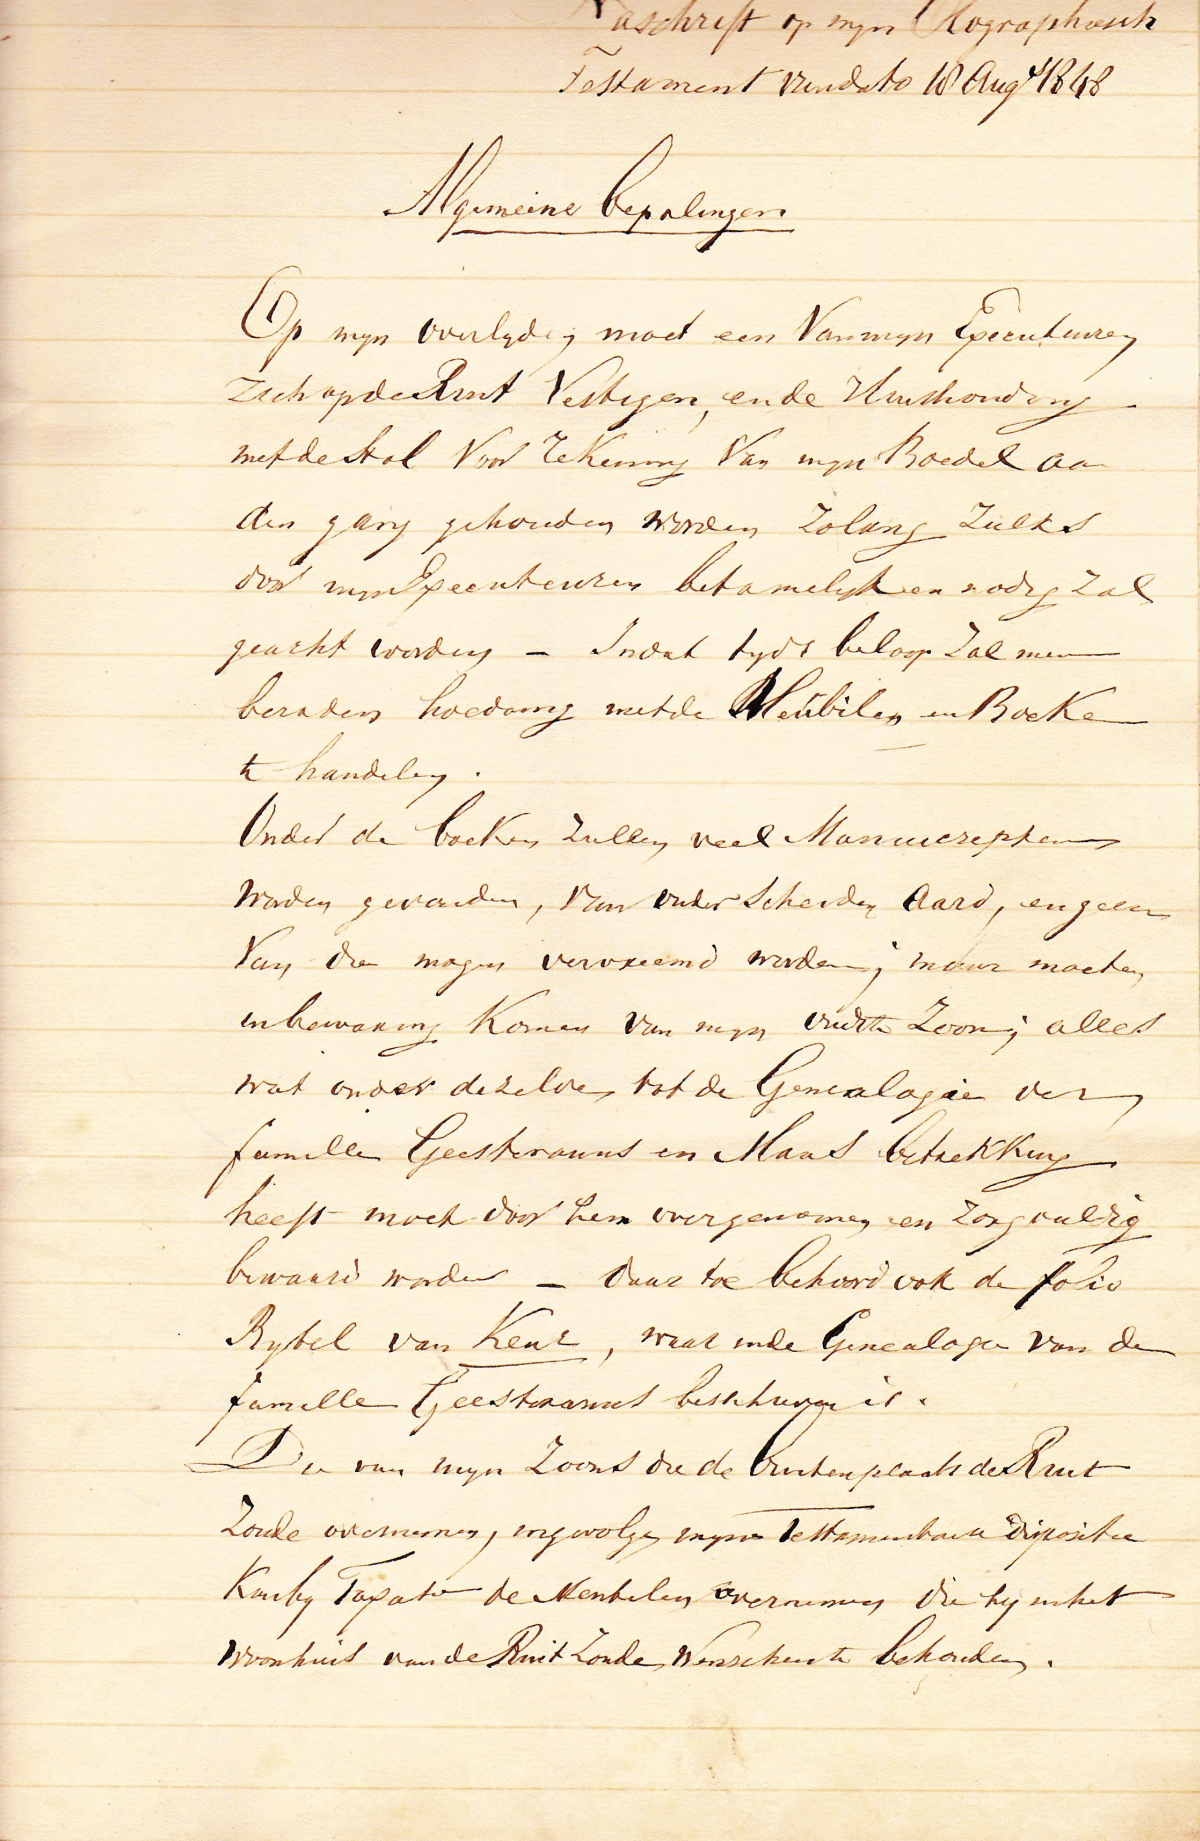 Naschrift op mijn Olographisch
Testament van dato 18 Augt 1848
Algemeine bepalingen
Op mijn overlyden moet een van mijn Executeuren
zich op de Ruit vestigen, en de Huishouding
met de stal voor rekening van mijn Boedel aan
den gang gehouden worden zolang zulks
door mijn Executeuren betamelijk en nodig zal
geacht worden – In dat tyds beloop zal men
beraden hoedanig met de Meubilen en Boeken
te handelen.
Onder de boeken zullen veel Manuscripten
worden gevonden, van onderscheiden aard, en geen
van die mogen vervreemd worden; maar moeten
in bewaring komen van mijn oudste Zoon; alles
wat onder dezelven tot de Genealogie der
familie Geesteranus en Maas betrekking
heeft moet door hem overgenomen en zorgvuldig
bewaard worden – daar toe behoord ook de folio
Bybel van Keur, waar in de Genealogie van de
familie Geesteranus beschreven is.
Die van mijn Zoons die de buitenplaats de Ruit
zoude overnemen, ingevolge mijne Testamentaire dispositie
kan by Taxatie de Meubelen overnemen die hy in het
woonhuis van de Ruit zoude wenschen te behouden.